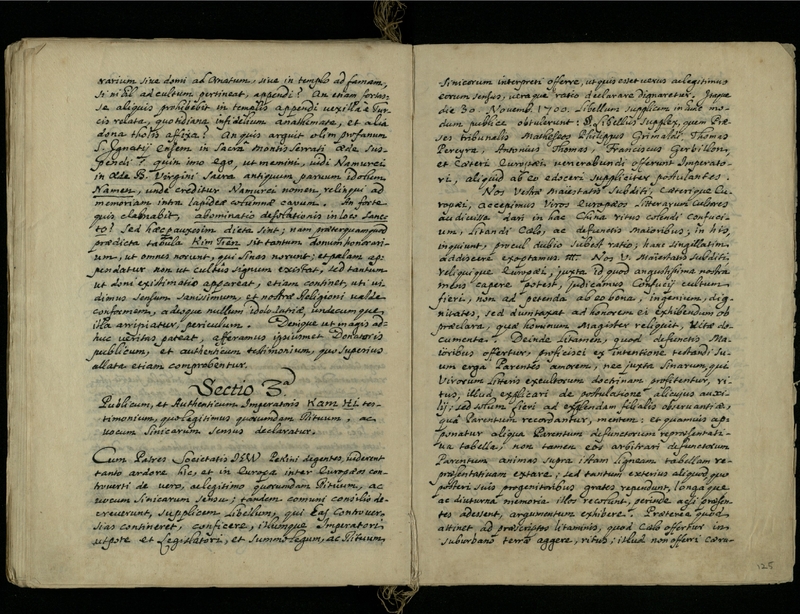 rarium sive domi ad Ornatum, sive in templo ad famam,
si nihil ad cultum pertineat, appendi? An etiam fortas-
se aliquis prohibebit in templis appendi vexilla Tur-
cis relata, quotidiana infidelium anathemata, et alia
dona tholis afixa? An quis arguit olim profanum
S. Ignatij Ensem in Sacra Montisserrati æde sus-
pendi? quin imo ego, ut memini, vidi Namurci
in Æde B. Virgini Sacra antiquum parvum idolum
Namen, unde creditur Namurci nomen, relinqui ad
memoriam intra lapideæ columnæ cavum. An forte
quis clamabit, abominatio desolationis in loco Sanc-
to? Sed hæc pauxsim dicta sint; nam præterquamquod
prædicta tabula Kim Tien sit tantum donum honorari-
um, ut omnes norunt, qui Sinas norunt; et palam ap-
pendatur non ut cultus signum existat, sed tantum
ut doni existimatio appareat, etiam continet, uti vi-
dimus sensum Sanissimum, et nostræ Religioni valde
conformem, adeoque nullum idololatriæ, undecumque
illa arripiatur, periculum. Denique ut magis ad-
huc veritas pateat, afferamus ipsiusmet Donatoris
publicum, et authenticum testimonium, quo superius
allata etiam comprobentur.
Sectio 3.ª
Publicum, et Authenticum Imperatoris Kam Hi tes-
timonium, quo legitimus quorundam Rituum, ac
vocum Sinicarum sensus declaratur.
Cum Patres Societatis IESV Pekini degentes, viderent
tanto ardore hic, et in Europa inter Europæos con-
troverti de vero, ac legitimo quorundam Rituum, ac
vocum Sinicarum sensu; tandem comuni consilio de-
creverunt, supplicem Libellum, qui Eas Controver-
sias contineret, conficere, illumque Imperatori
utpote et Legislatori, et Summo legum, ac Rituum
Sinicorum interpreti offerre, ut quis esset verus ac legitimus
eorum sensus, vera que ratio declarare dignaretur. Itaque
die 30. Novemb. 1700. Libellum supplicem in hunc mo-
dum publice obtulerunt: Libellus supplex, quem Præ-
ses tribunalis Matheseos Philippus Grimaldi, Thomas
Pereyra, Antonius Thomas, Franciscus Gerbillon,
et Cæteri Europæi venerabundi offerunt Imperato-
ri, aliquid ab eo edoceri suppliciter postulantes.
Nos Vestræ Maiestatis Subditi, Cæterique Eu-
ropæi, accepimus Viros Europæos Litterarum cultores
audivisse dari in hac China ritus colendi Confuci-
um, Litandi Cælo, ac defunctis Maioribus; in his,
inquiunt, procul dubio subest ratio; hanc singillatim
addiscere exoptamus. Nos V. Maiestatis Subditi,
reliquique Europæi, juxta id quod angustissima nostra
mens capere potest, judicamus Confucij cultum
fieri, non ad petenda ab eo bona, ingenium, dig-
nitates, sed dumtaxat ad honorem ei exhibendum ob
præclara, quæ hominum Magister reliquit, vitæ do-
cumenta. Deinde Litamen, quod defunctis Ma-
ioribus offertur, proficisci ex intentione testandi su-
um erga Parentes amorem; nec juxta Sinarum, qui
Virorum Litteris excultorum doctrinam profitentur, ri-
tus, illud explicari de postulatione alicujus auxi-
lij; sed totum fieri ad explendam filialis observantiæ,
qua Parentum recordantur, mentem: et quamvis ap-
ponatur aliqua Parentum defunctorum repræsentati-
va tabella, non tamen eos arbitrari defunctorum
Parentum animas supra istam ligneam tabellam re-
præsentativam extare; sed tantum externius aliquid, quo
posteri suis progenitoribus grates rependunt, longaque
ac diuturna memoria illos recolunt, perinde acsi præsen-
tes adessent, argumentum exhibere. Præterea quod
attinet ad præscriptos litaminis, quod Cælo offertur in
suburbano terræ aggere, ritus; illud non offerri cæru-
125